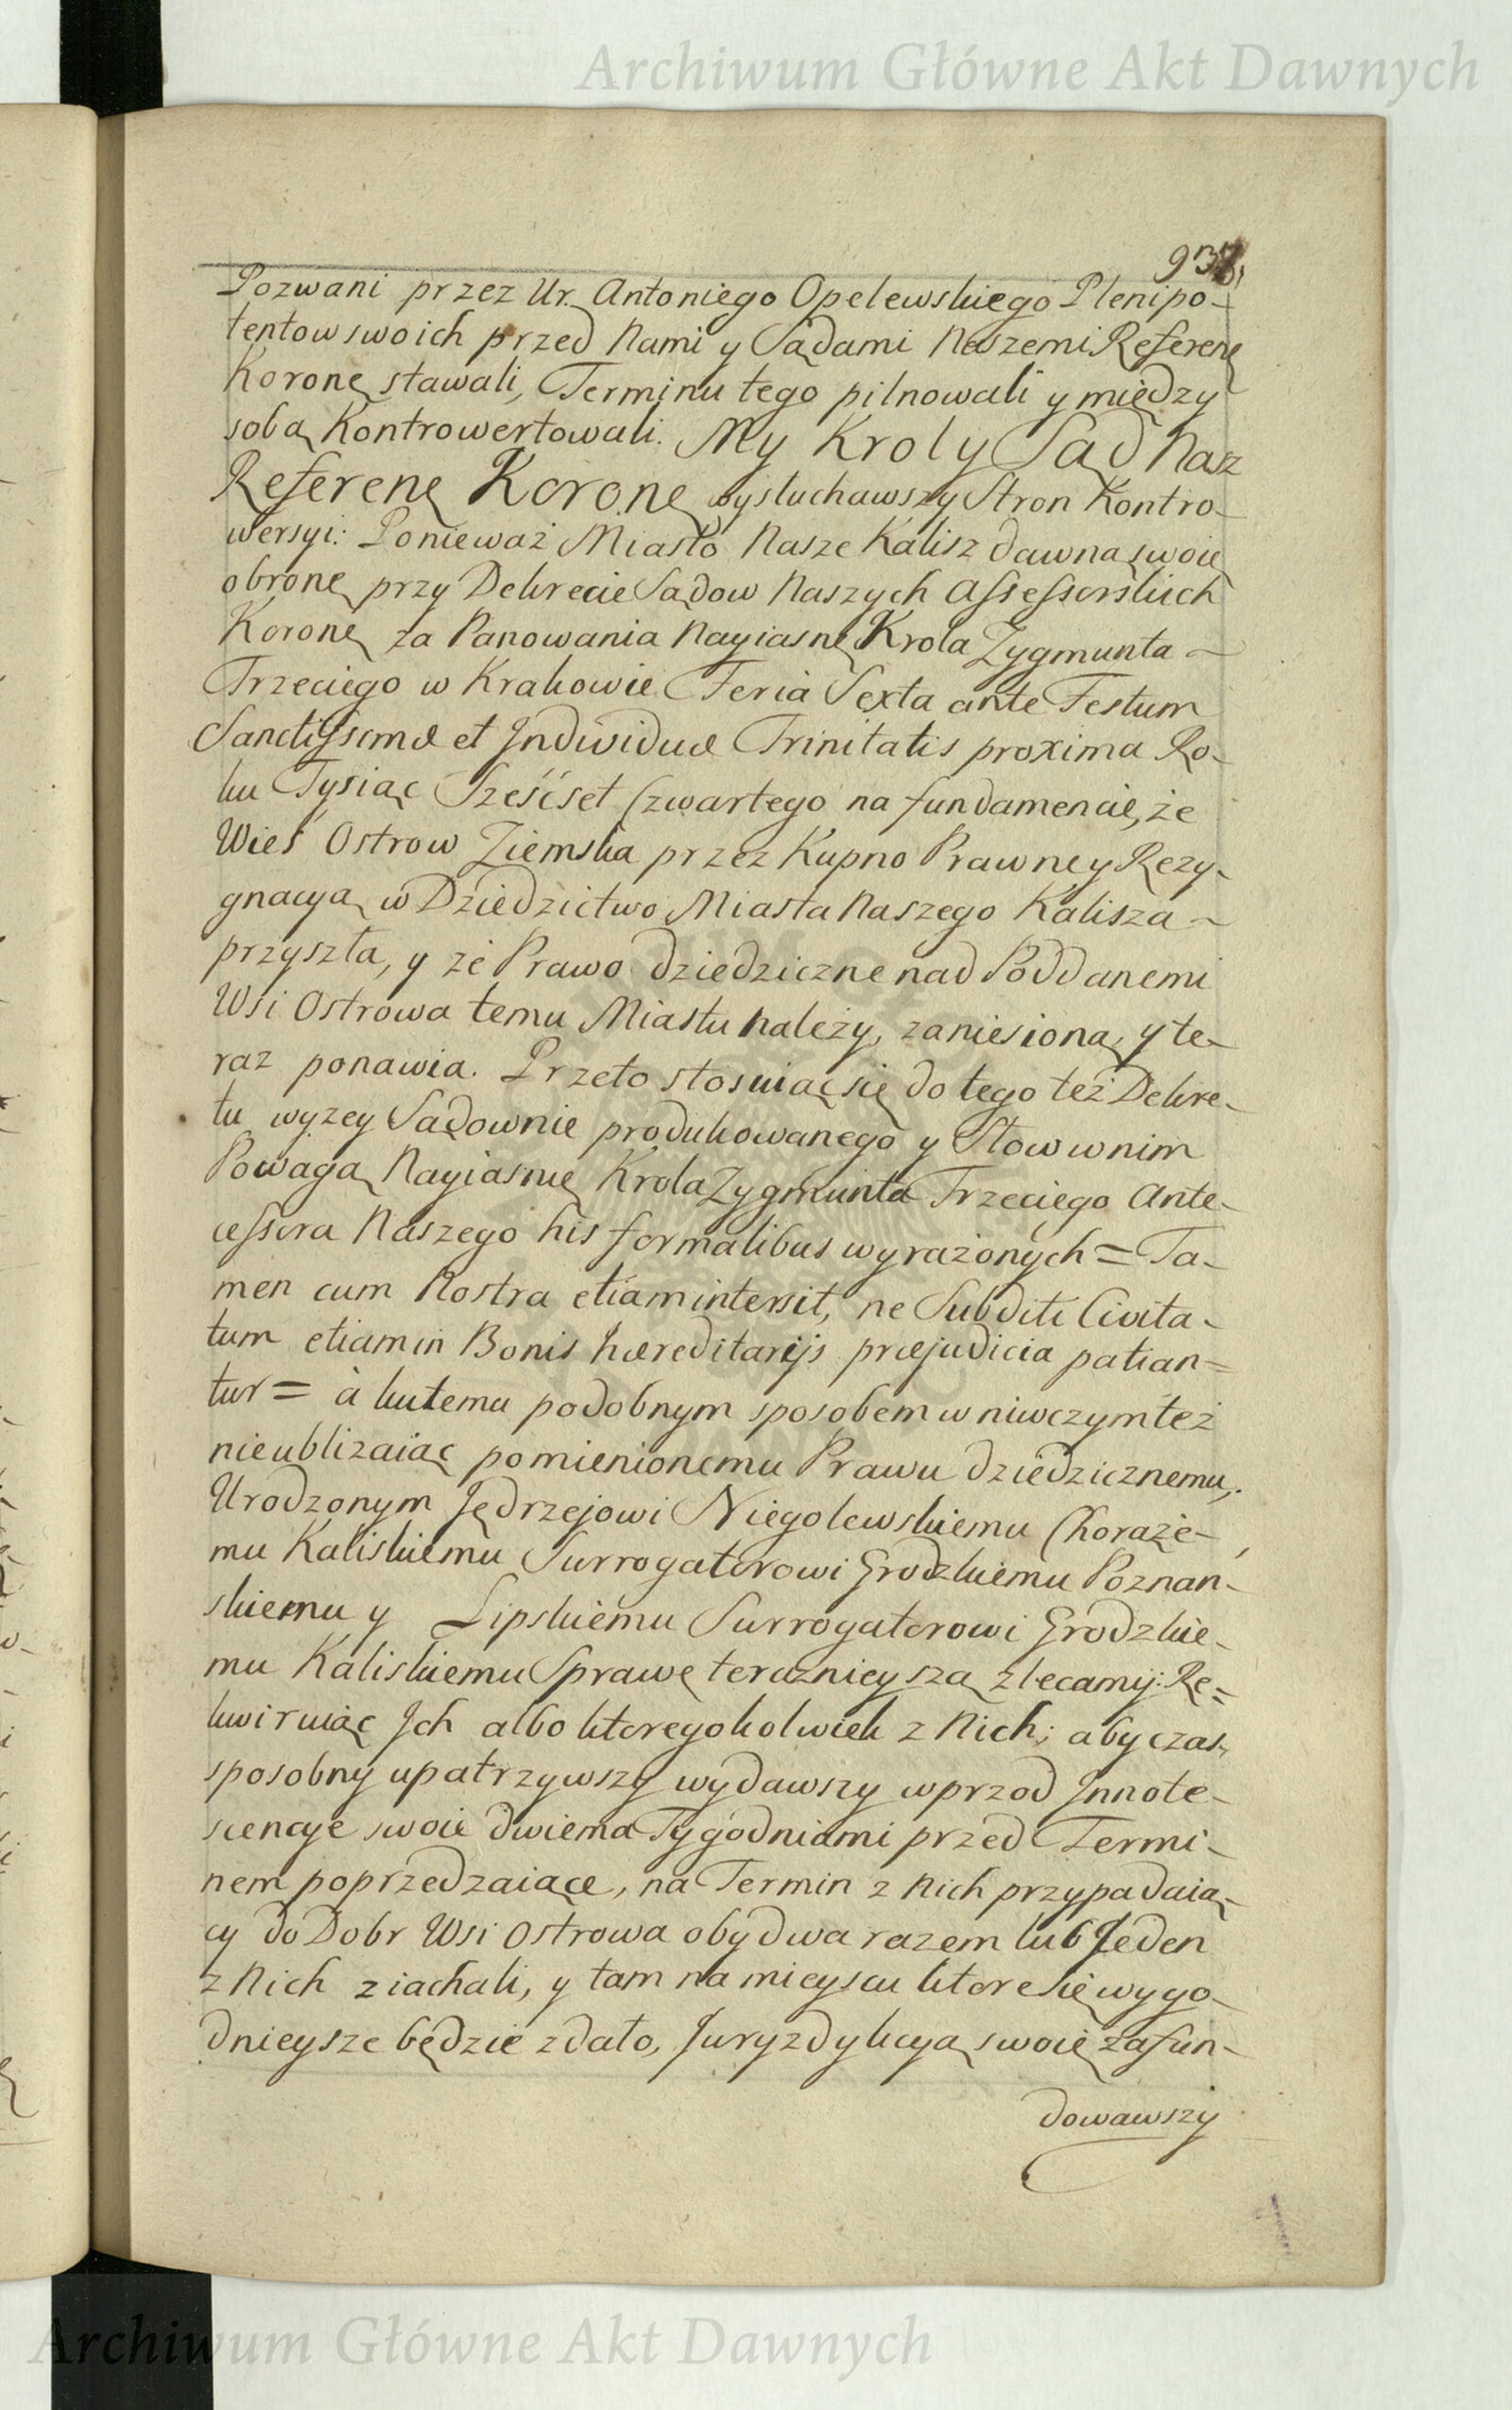 Archiwum Główne Akt Dawnych
937
Pozwani przez Ur. Antoniego Opelewskiego Plenipo-
tentow swoich przed Nami y Sądami Naszemi Referenę
Koronę stawali, Terminu tego pilnowali y między
sobą Kontrowertowali. My Krol y Sąd Nasz
Referenę Koronę wysłuchawszy Stron Kontro-
wersyi: Ponieważ Miasto Nasze Kalisz dawną swoię
obronę przy Dekrecie Sądow Naszych Assessorskich
Koronę za Panowania Nayiasnę Krola Zygmunta
Trzeciego w Krakowie Feria Sexta ante Festum
Sanctissimæ et Individuæ Trinitatis proxima Ro-
ku Tysiąc Sześćset Czwartego na fundamencie, że
Wieś Ostrow Ziemska przez Kupno Prawne y Rezy-
gnacyą w Dziedzictwo Miasta Naszego Kalisza
przyszła, y że Prawo dziedziczne nad Poddanemi
Wsi Ostrowa temu Miastu należy, zaniesioną y te-
raz ponawia. Przeto stosuiąc się do tego też Dekre-
tu wyzey Sądownie produkowanego y Słow w nim
Powagą Nayiasnię Krola Zygmunta Trzeciego Ante-
cessora Naszego his formalibus wyrażonych = Ta-
men cum Nostra etiam intersit, ne Subditi Civita-
tum etiam in Bonis hæreditarijs præjudicia patian=
tur = à ku temu podobnym sposobem w niwczym też
nieubliżaiąc pomienionemu Prawu dziedzicznemu,
Urodzonym Jędrzejowi Niegolewskiemu Chorąże-
mu Kaliskiemu Surrogatorowi Grodzkiemu Poznan-
skiemu y Lipskiemu Surrogatorowi Grodzkie-
mu Kaliskiemu Sprawę teraznieyszą zlecamy: Re=
kwiruiąc Jch albo ktoregokolwiek z Nich; aby czas
sposobny upatrzywszy wydawszy wprzod Jnnote-
scencye swoie dwiema Tygodniami przed Termi-
nem poprzedzaiące, na Termin z Nich przypadaią-
cy do Dobr Wsi Ostrowa obydwa razem lub Jeden
z Nich ziachali, y tam na mieyscu ktore się wygo-
dnieysze będzie zdało, Juryzdykcyą swoię zafun-
dowawszy
Archiwum Główne Akt Dawnych